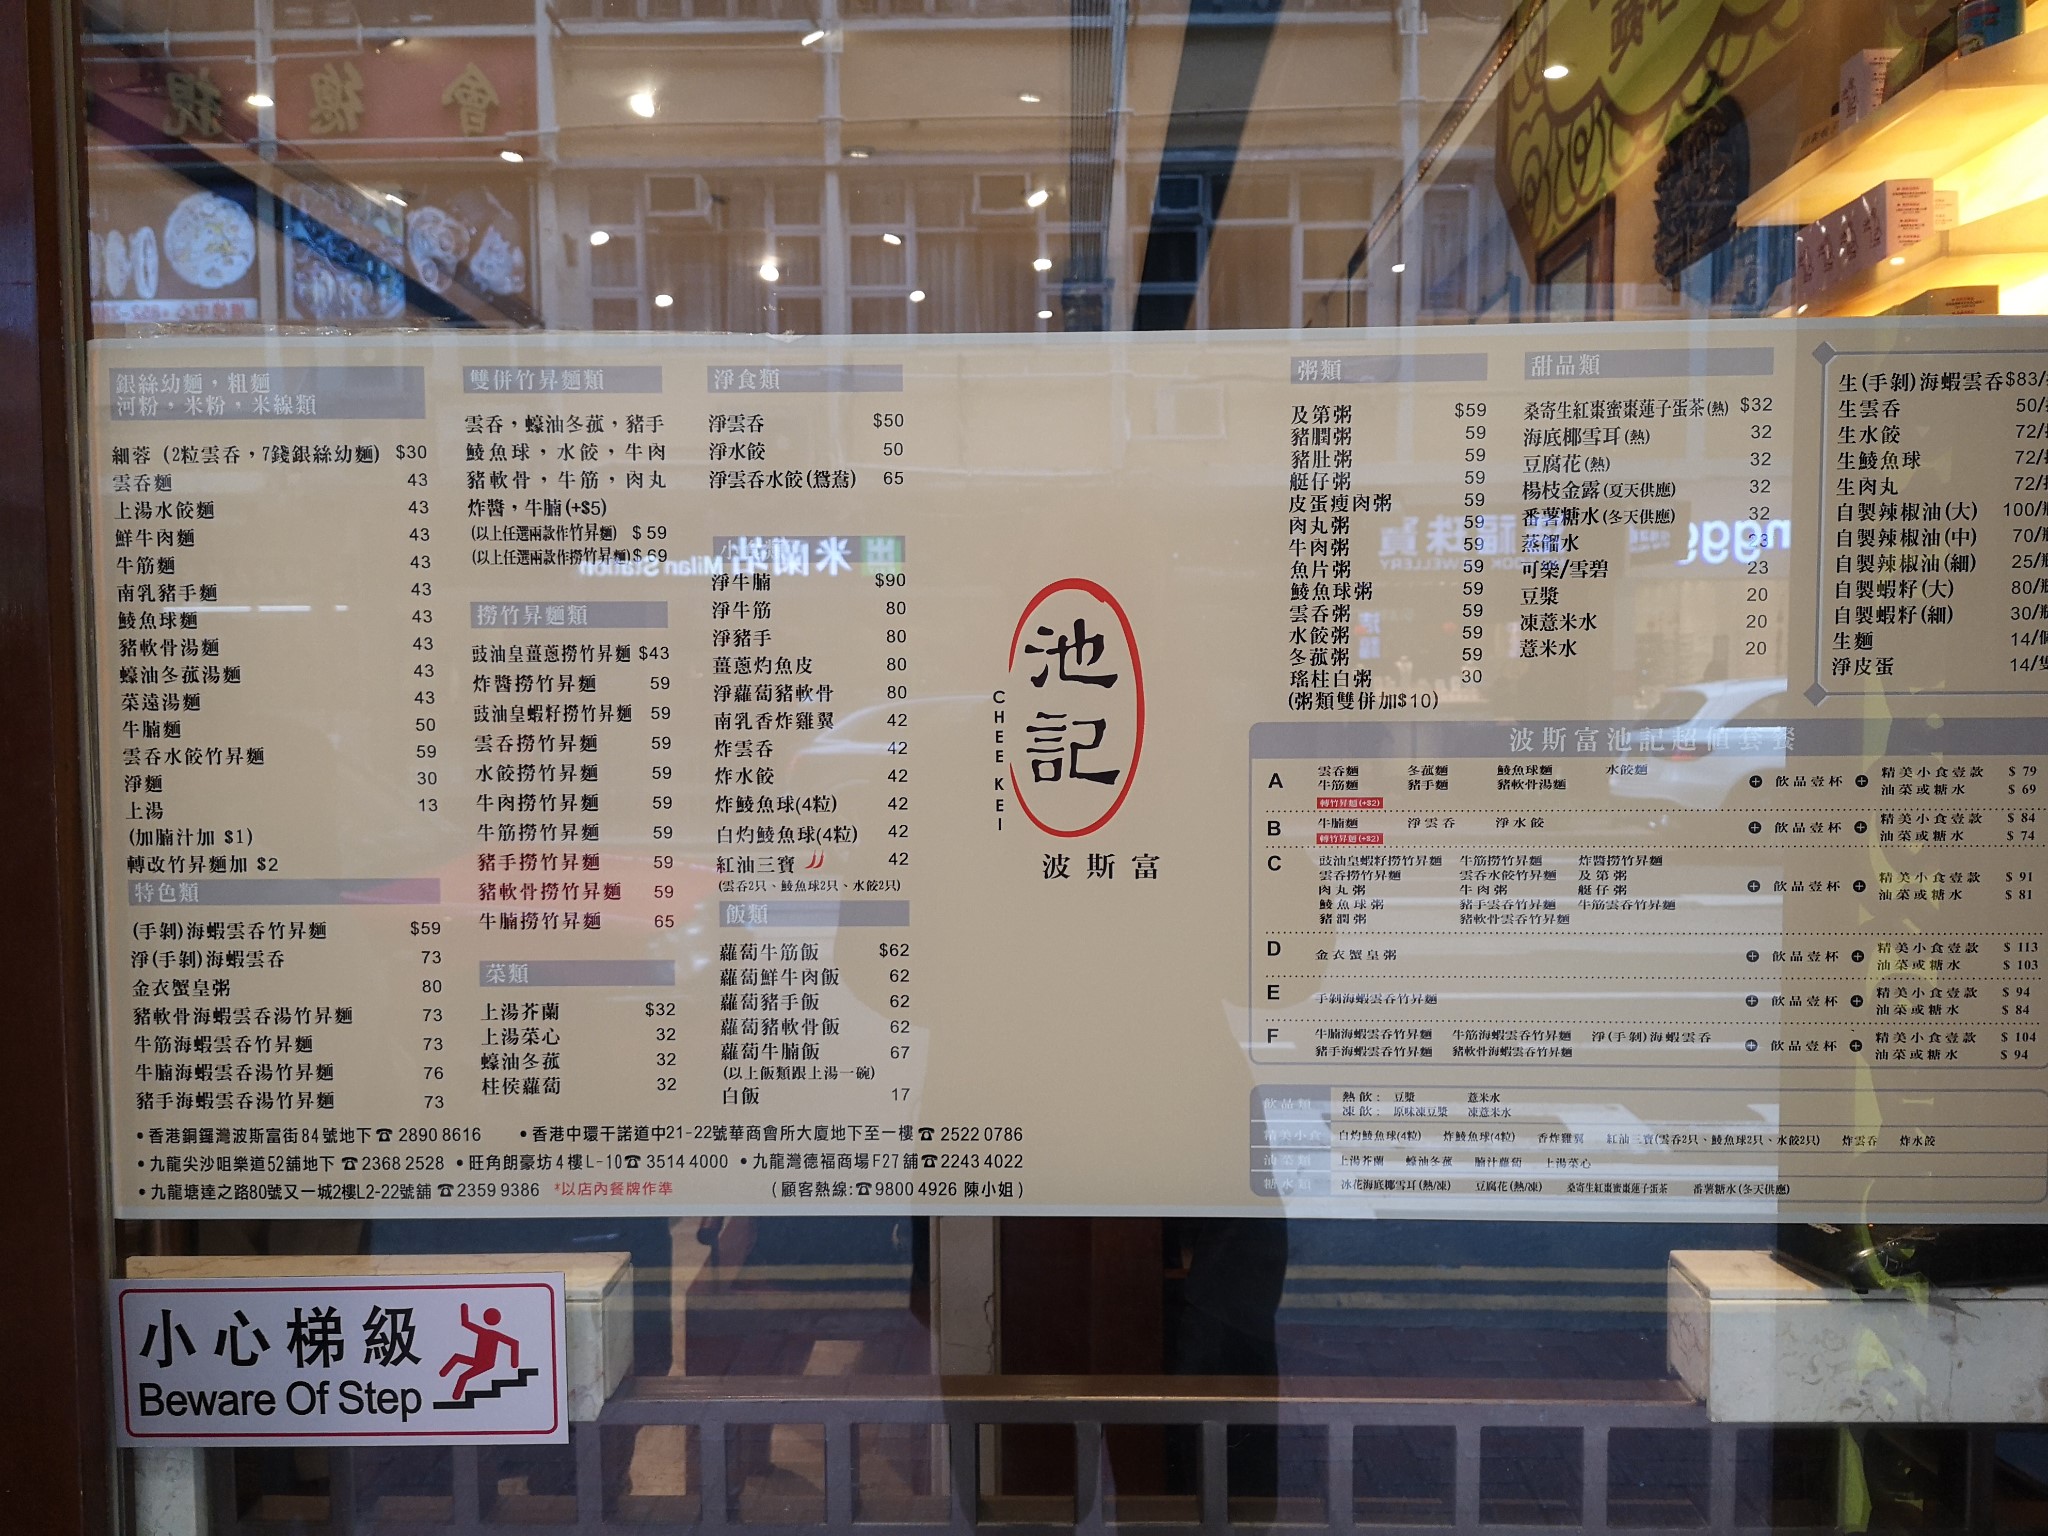 銀絲幼麵，粗麵
河粉，米粉，米線類
細蓉 (2粒雲吞，7錢銀絲幼麵) $30
雲吞麵 43
上湯水餃麵 43
鮮牛肉麵 43
牛筋麵 43
南乳豬手麵 43
鯪魚球麵 43
豬軟骨湯麵 43
蠔油冬菰湯麵 43
菜遠湯麵 43
牛腩麵 50
雲吞水餃竹昇麵 59
淨麵 30
上湯 13
(加腩汁加 $1)
轉改竹昇麵加 $2
特色類
(手剝)海蝦雲吞竹昇麵 $59
淨(手剝)海蝦雲吞 73
金衣蟹皇粥 80
豬軟骨海蝦雲吞湯竹昇麵 73
牛筋海蝦雲吞竹昇麵 73
牛腩海蝦雲吞湯竹昇麵 76
豬手海蝦雲吞湯竹昇麵 73
雙併竹昇麵類
雲吞，蠔油冬菰，豬手
鯪魚球，水餃，牛肉
豬軟骨，牛筋，肉丸
炸醬，牛腩(+$5)
(以上任選兩款作竹昇麵) $ 59
(以上任選兩款作撈竹昇麵) $ 69
撈竹昇麵類
豉油皇薑蔥撈竹昇麵 $43
炸醬撈竹昇麵 59
豉油皇蝦籽撈竹昇麵 59
雲吞撈竹昇麵 59
水餃撈竹昇麵 59
牛肉撈竹昇麵 59
牛筋撈竹昇麵 59
豬手撈竹昇麵 59
豬軟骨撈竹昇麵 59
牛腩撈竹昇麵 65
菜類
上湯芥蘭 $32
上湯菜心 32
蠔油冬菰 32
柱侯蘿蔔 32
淨食類
淨雲吞 $50
淨水餃 50
淨雲吞水餃(鴛鴦) 65
淨牛腩 $90
淨牛筋 80
淨豬手 80
薑蔥灼魚皮 80
淨蘿蔔豬軟骨 80
南乳香炸雞翼 42
炸雲吞 42
炸水餃 42
炸鯪魚球(4粒) 42
白灼鯪魚球(4粒) 42
紅油三寶 42
(雲吞2只、鯪魚球2只、水餃2只)
飯類
蘿蔔牛筋飯 $62
蘿蔔鮮牛肉飯 62
蘿蔔豬手飯 62
蘿蔔豬軟骨飯 62
蘿蔔牛腩飯 67
(以上飯類跟上湯一碗)
白飯 17
•香港銅鑼灣波斯富街84號地下☎ 2890 8616 •香港中環干諾道中21-22號華商會所大廈地下至一樓☎ 2522 0786
•九龍尖沙咀樂道52舖地下 ☎2368 2528 •旺角朗豪坊4樓L-10☎ 3514 4000 •九龍灣德福商場F27舖☎2243 4022
•九龍塘達之路80號又一城2樓L2-22號舖 ☎2359 9386 *以店內餐牌作準 (顧客熱線:☎9800 4926 陳小姐)
池記
CHEE KEI
波斯富
粥類
及第粥 $59
豬膶粥 59
豬肚粥 59
艇仔粥 59
皮蛋瘦肉粥 59
肉丸粥 59
牛肉粥 59
魚片粥 59
鯪魚球粥 59
雲吞粥 59
水餃粥 59
冬菰粥 59
瑤柱白粥 30
(粥類雙併加$10)
甜品類
桑寄生紅棗蜜棗蓮子蛋茶(熱) $32
海底椰雪耳(熱) 32
豆腐花(熱) 32
楊枝金露(夏天供應) 32
番薯糖水(冬天供應) 32
蒸餾水 23
可樂/雪碧 23
豆漿 20
凍薏米水 20
薏米水 20
生(手剝)海蝦雲吞$83/
生雲吞 50/
生水餃 72/
生鯪魚球 72/
生肉丸 72/
自製辣椒油(大) 100/
自製辣椒油(中) 70/
自製辣椒油(細) 25/
自製蝦籽(大) 80/
自製蝦籽(細) 30/
生麵 14/
淨皮蛋 14/
波斯富池記超值套餐
A 雲吞麵 冬菰麵 鯪魚球麵 水餃麵 飲品壹杯 精美小食壹款 $ 79
牛筋麵 豬手麵 豬軟骨湯麵 油菜或糖水 $ 69
轉竹昇麵(+$2)
B 牛腩麵 淨雲吞 淨水餃 飲品壹杯 精美小食壹款 $ 84
轉竹昇麵(+$2) 油菜或糖水 $ 74
C 豉油皇蝦籽撈竹昇麵 牛筋撈竹昇麵 炸醬撈竹昇麵
雲吞撈竹昇麵 雲吞水餃竹昇麵 及第粥 飲品壹杯 精美小食壹款 $ 91
肉丸粥 牛肉粥 艇仔粥 油菜或糖水 $ 81
鯪魚球粥 豬手雲吞竹昇麵 牛筋雲吞竹昇麵
豬潤粥 豬軟骨雲吞竹昇麵
D 金衣蟹皇粥 飲品壹杯 精美小食壹款 $ 113
油菜或糖水 $ 103
E 手剝海蝦雲吞竹昇麵 飲品壹杯 精美小食壹款 $ 94
油菜或糖水 $ 84
F 牛腩海蝦雲吞竹昇麵 牛筋海蝦雲吞竹昇麵 淨(手剝)海蝦雲吞 飲品壹杯 精美小食壹款 $ 104
豬手海蝦雲吞竹昇麵 豬軟骨海蝦雲吞竹昇麵 油菜或糖水 $ 94
飲品類 熱飲: 豆漿 薏米水
凍飲: 原味凍豆漿 凍薏米水
精美小食 白灼鯪魚球(4粒) 炸鯪魚球(4粒) 香炸雞翼 紅油三寶(雲吞2只、鯪魚球2只、水餃2只) 炸雲吞 炸水餃
油菜類 上湯芥蘭 蠔油冬菰 腩汁蘿蔔 上湯菜心
糖水類 冰花海底椰雪耳(熱/凍) 豆腐花(熱/凍) 桑寄生紅棗蜜棗蓮子蛋茶 番薯糖水(冬天供應)
小心梯級
Beware Of Step